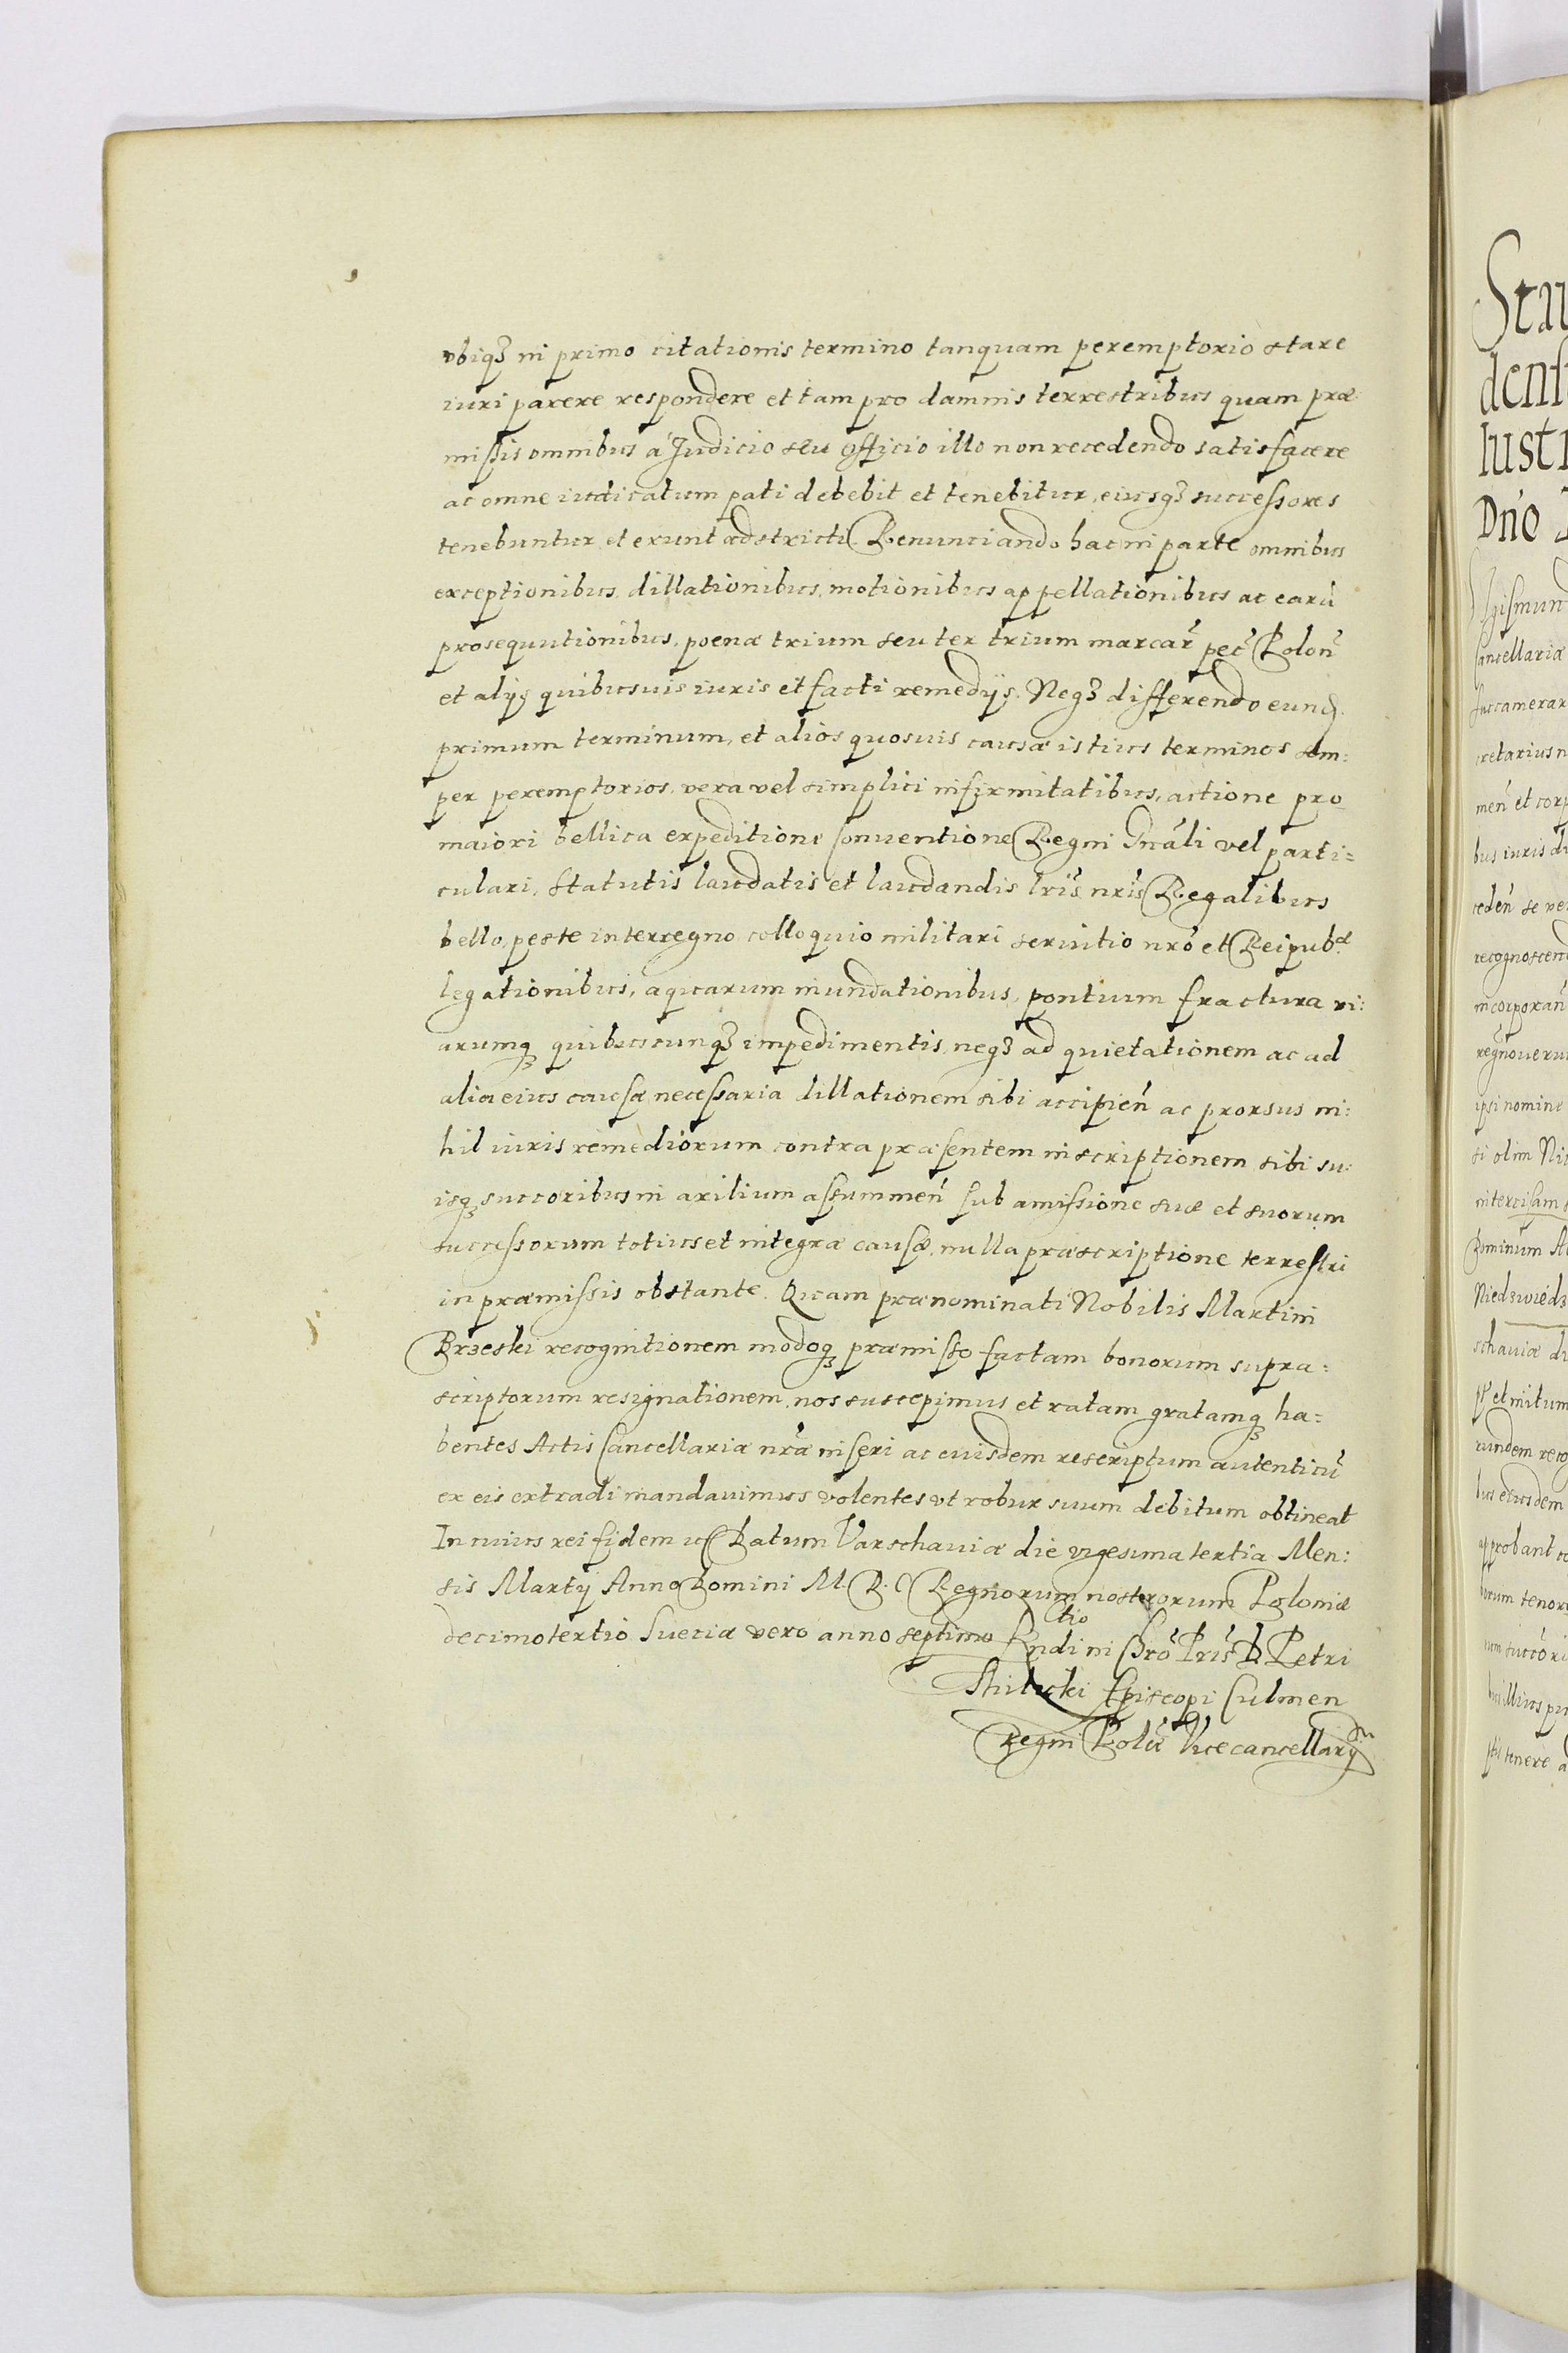 vbiq3 in primo citationis termino tanquam peremptorio stare
iuri parere respondere et tam pro damnis terrestribus quam præ
missis omnibus a Judicio seu Officio illo non recedendo satisfacere
ac omne iudicatum pati debebit et tenebitur, eiusq3 successores
tenebuntur et erunt adstricti Renunciando hac in parte omnibus
exceptionibus, dillationibus, motionibus appellationibus ac earū
prosequutionibus, poenæ trium seu ter trium marcar̃ pec̃ Polon̄
et alijs quibusuis iuris et facti remedijs. Neq3 differendo eund
primum terminum, et alios quosuis causæ istius terminos sem:
per peremptorios, vera vel simplici infirmitatibus, actione pro
maiori bellica expeditione Conuentione Regni Gnāli vel parti=
culari, Statutis laudatis et laudandis lr̄is nr̄is Regalibus
bello, peste interregno colloquio militari seruitio nrō et Reipub.æ
legationibus, aquarum inundationibus, pontium fractura vi:
arumq3 quibuscunq3 impedimentis, neq3 ad quietationem ac ad
alia eius causæ necessaria dillationem sibi accipien̄ ac prorsus ni:
hil iuris remediorum contra præsentem inscriptionem sibi su:
isq3 succoribus in axilium assummen̄ sub amissione suæ et suorum
successorum totius et integræ causæ, nulla præscriptione terrestri
in præmissis obstante. Quam prænominati Nobilis Martini
Brzeski recognitionem modoq3 præmisso factam bonorum supra=
scriptorum resignationem, nos suscepimus et ratam gratamq3 ha=
bentes Actis Cancellariæ nrā inseri ac euisdem rescriptum autenticū
ex eis extradi mandauimus volentes vt robur suum debitum obtineat
In cuius rei fidem Datum Varschauiæ die vigesima tertia Men:
sis Martij Anno Domini M. D. C Regnorum nostrorum Poloniæ
decimotertio Sueciæ vero anno septimo Rndi in Chrō Pris D. Petri
tio
Episcopi Culmen
Regni Vicecancellarij
Stau
densi
lust
Dn̄o
igismun
Cancellariæ
Succamerar
cretarius n
men̄ et corp
bus iuris di
ceden̄ se ve
recognoscend
incorporan̄
regnouerun
ipsi nomine
si olim Ni
intercisam
Dominum
Niedzwiedz
schauiæ di
et initum
rundem reco
bus eiusdem
approbant
borum tenor
succōri
illius
tenere a